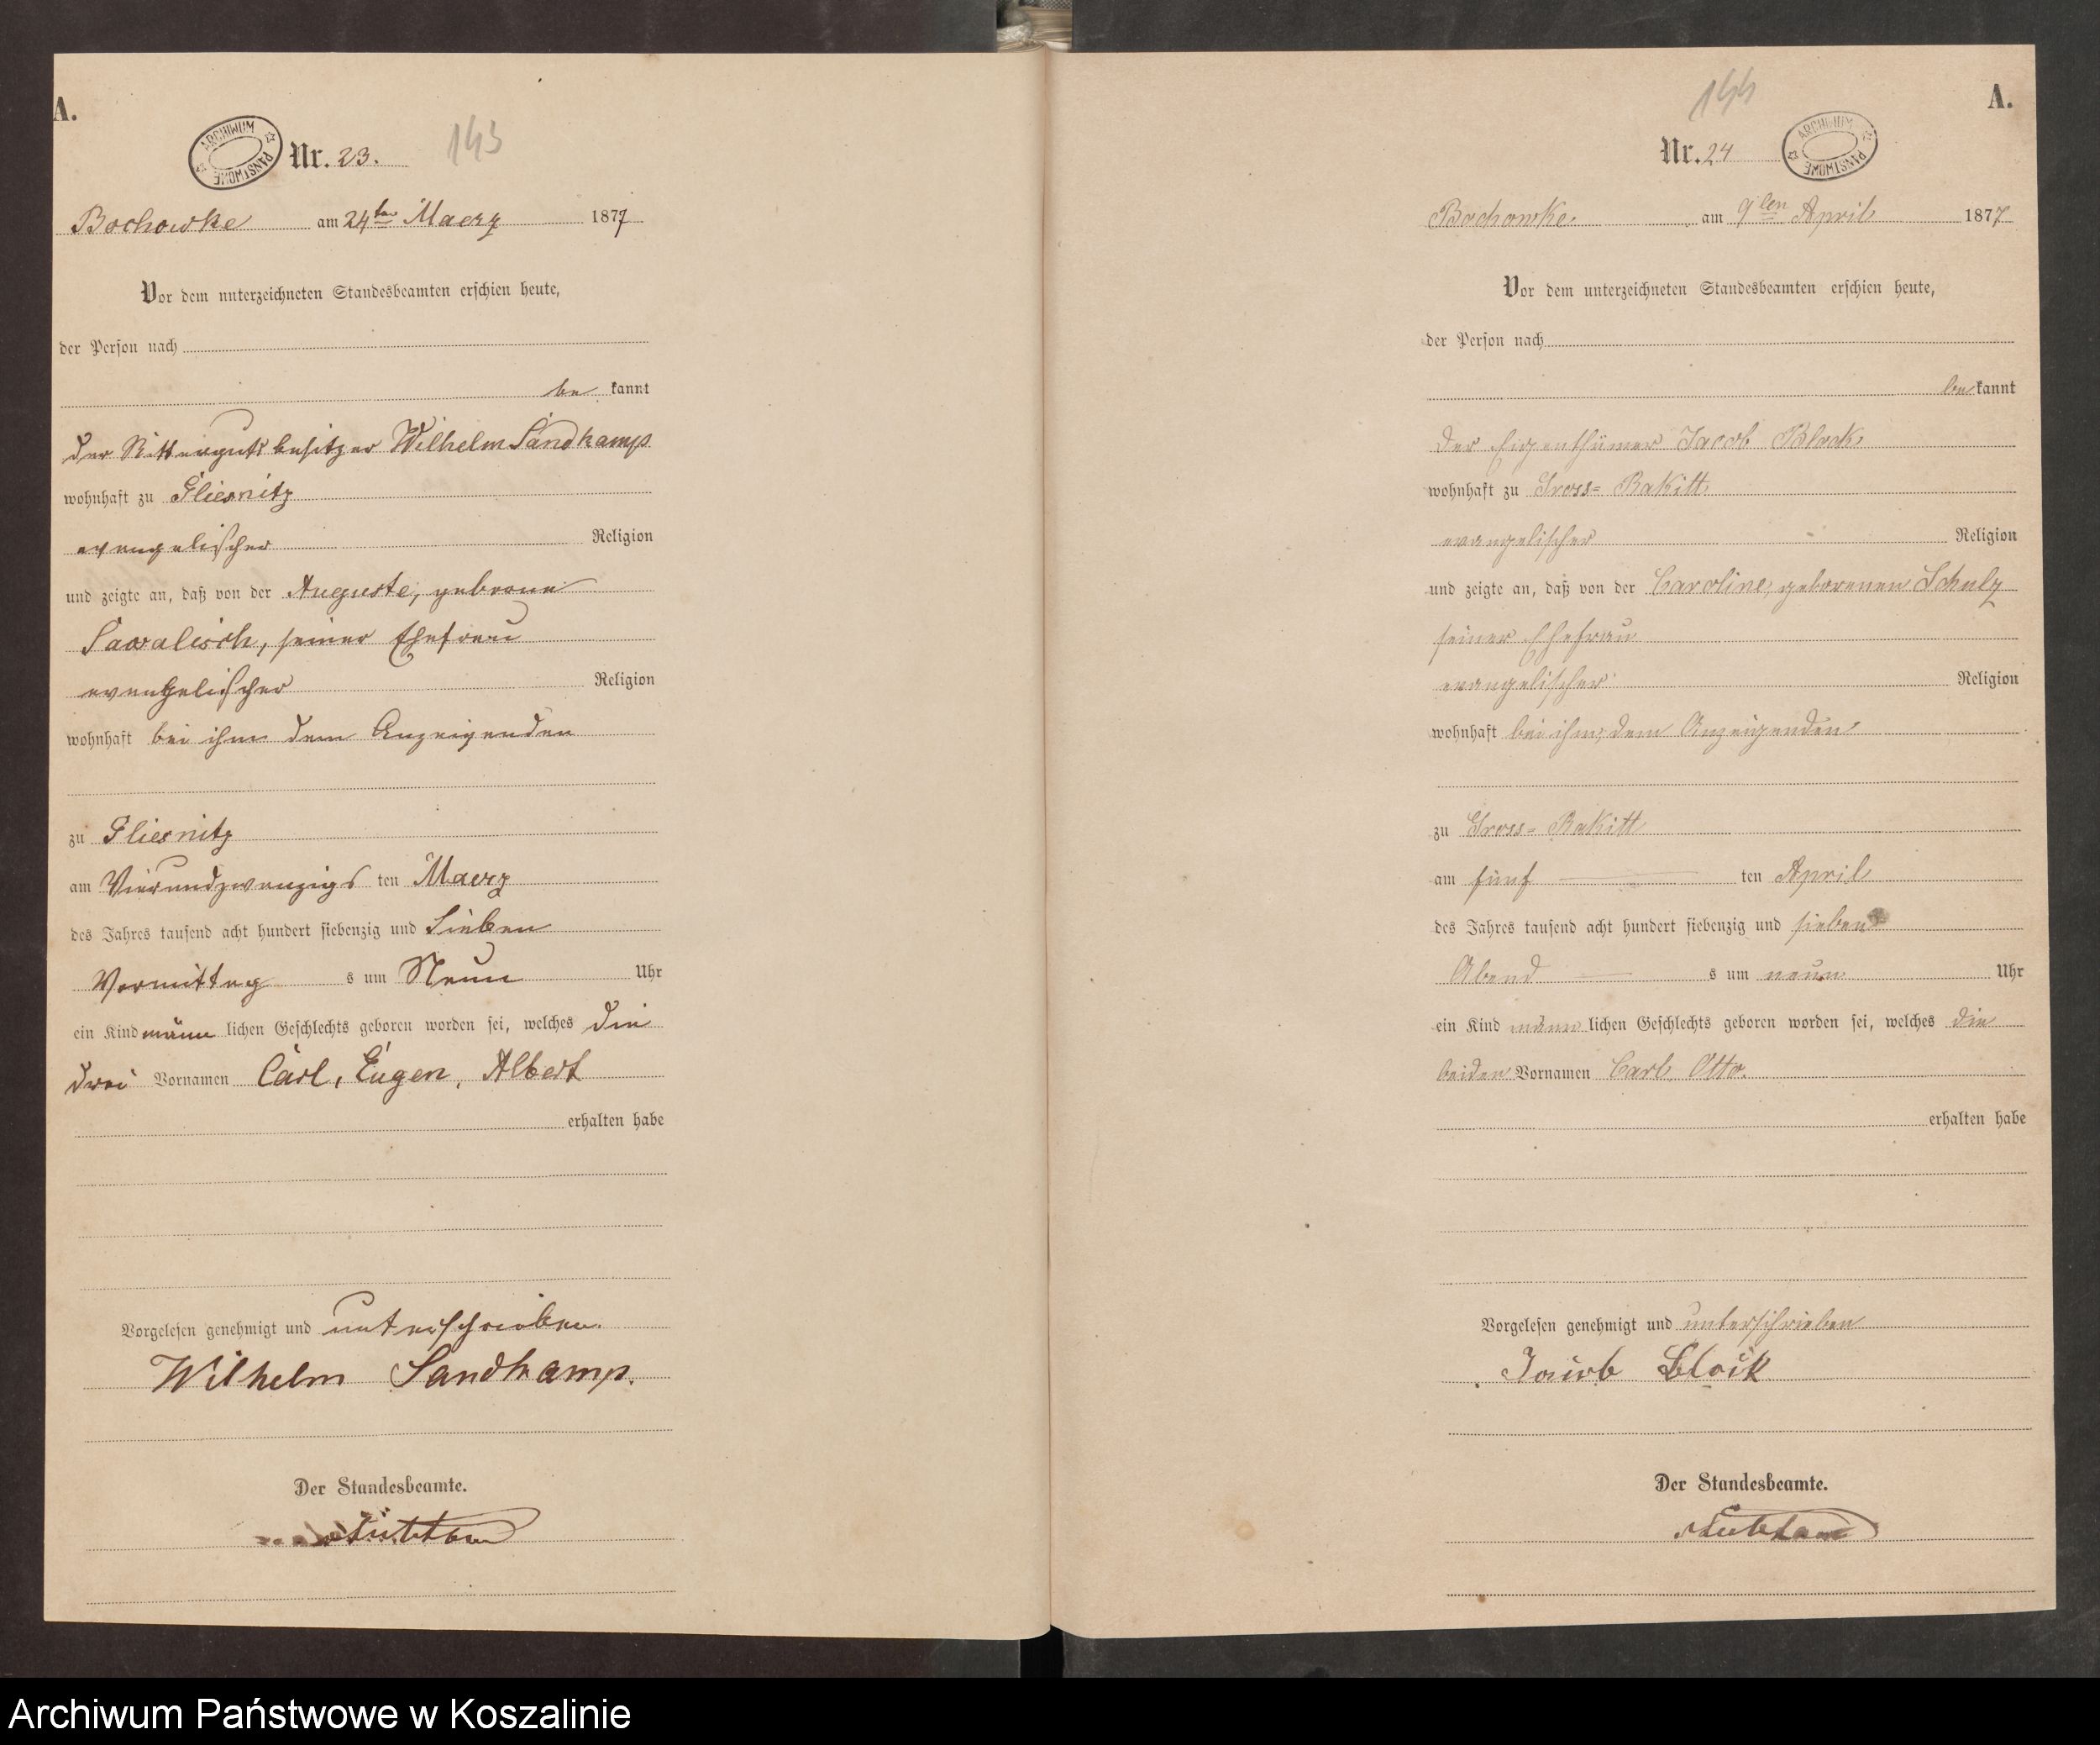 A.
ARCHIWUM PAŃSTWOWE
Nr. 23.
143
Bochowke am 24ten Maerz 1877
Vor dem unterzeichneten Standesbeamten erschien heute,
der Person nach
be kannt
der Rittergutsbesitzer Wilhelm Sandkamp
wohnhaft zu Gliesnitz
evangelischer Religion
und zeigte an, daß von der Auguste, geborne
Sawalisch, seiner Ehefrau
evangelischer Religion
wohnhaft bei ihm dem Anzeigenden
zu Gliesnitz
am Vierundzwanzigs ten Maerz
des Jahres tausend acht hundert siebenzig und Sieben
Vormittag s um Neun Uhr
ein Kind männ lichen Geschlechts geboren worden sei, welches die
drei Vornamen Carl, Eugen, Albert
erhalten habe
Vorgelesen genehmigt und unterschrieben.
Wilhelm Sandkamp.
Der Standesbeamte.
A.
144
Nr. 24
ARCHIWUM PAŃSTWOWE
Bochowke am 9ten April 1877
Vor dem unterzeichneten Standesbeamten erschien heute,
der Person nach
be kannt
der Eigenthümer Jacob Block
wohnhaft zu Gross= Rakitt
evangelischer Religion
und zeigte an, daß von der Caroline, geborenen Schulz
seiner Ehefrau
evangelischer Religion
wohnhaft bei ihm, dem Anzeigenden
zu Gross= Rakitt
am fünf ten April
des Jahres tausend acht hundert siebenzig und sieben
Abend s um neun Uhr
ein Kind männ lichen Geschlechts geboren worden sei, welches die
beiden Vornamen Carl, Otto.
erhalten habe
Vorgelesen genehmigt und unterschrieben
Jacob Block
Der Standesbeamte.
Archiwum Państwowe w Koszalinie